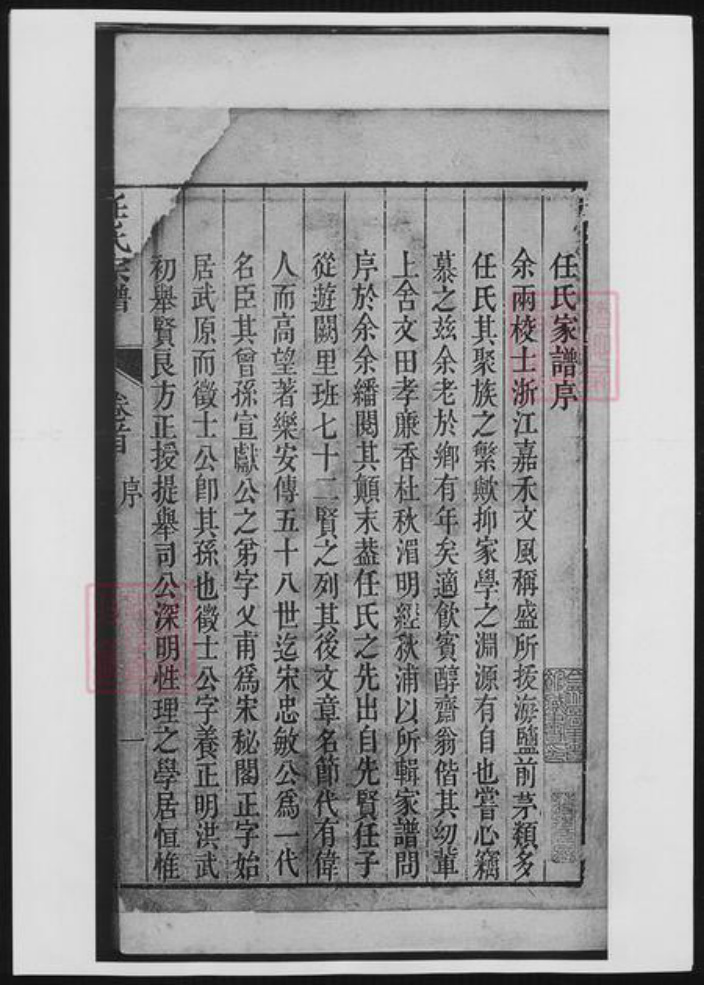 任氏家譜序
余兩校士浙江嘉禾文風稱盛所拔海鹽前茅類多
任氏其聚族之繁歟抑家學之淵源有自也嘗心竊
慕之玆余老於鄉有年矣適飲賓醇齋翁偕其幼軰
上舍文田孝亷香杜秋湄明經秋浦以所輯家譜問
序於余余繙閱其顛末葢任氏之先出自先賢任子
從遊闕里班七十二賢之列其後文章名節代有偉
人而高望著樂安傳五十八世迄宋忠敏公爲一代
名臣其曾孫宣獻公之弟字乂甫爲宋秘閣正字始
居武原而徵士公卽其孫也徵士公字養正明洪武
初舉賢良方正授提舉司公深明性理之學居恒惟
任氏宗譜
卷首
序
一